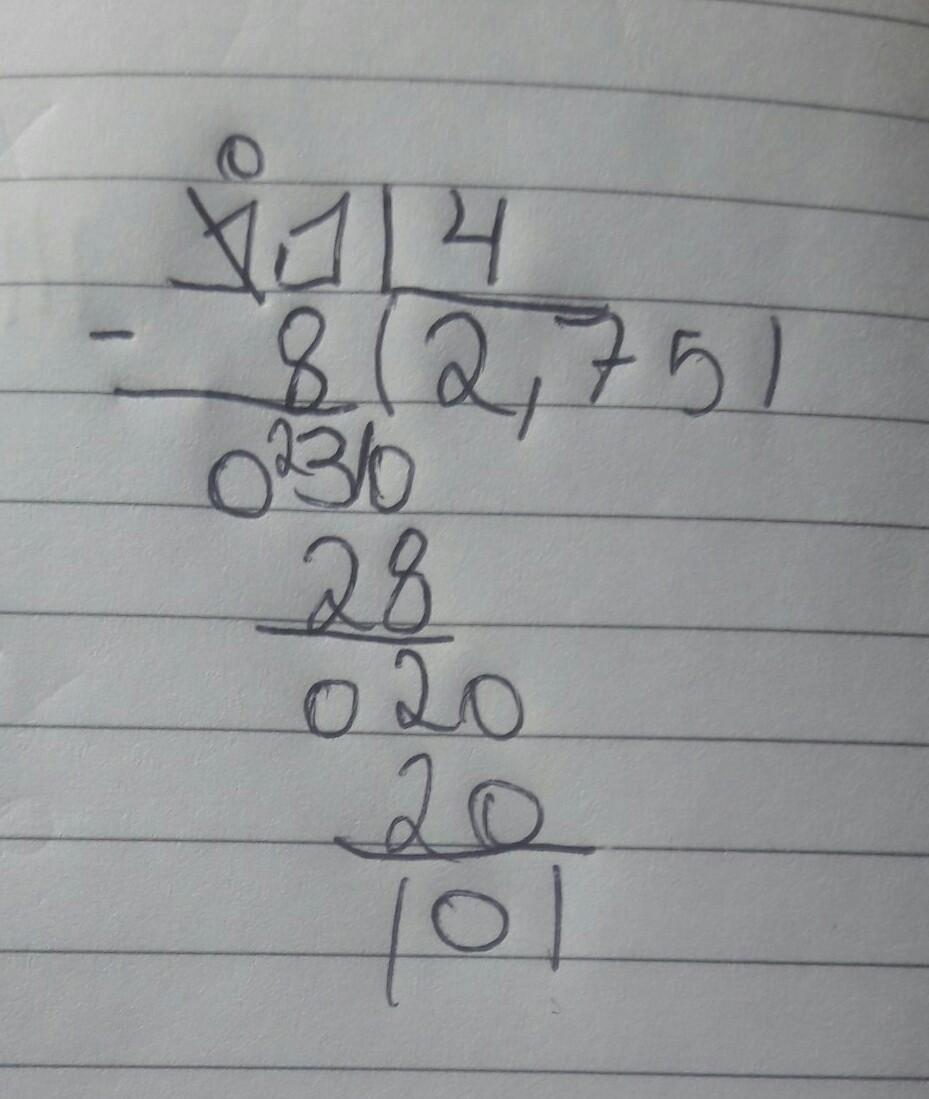 0
11 | 4
- 8 ( 2,75 |
0 2 3 10
28
0 20
20
| 0 |